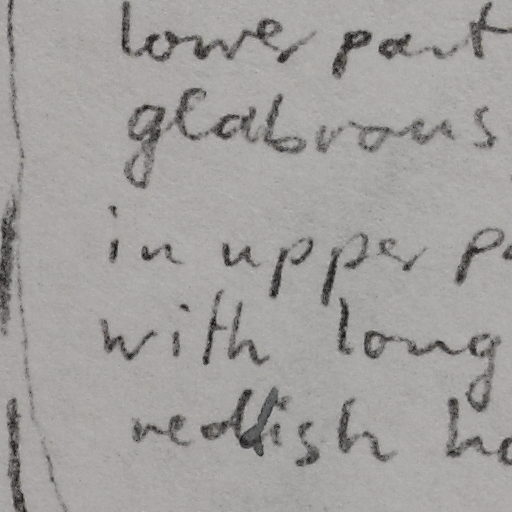 lower part
glabrous
in upper pa
with long
reddish ha